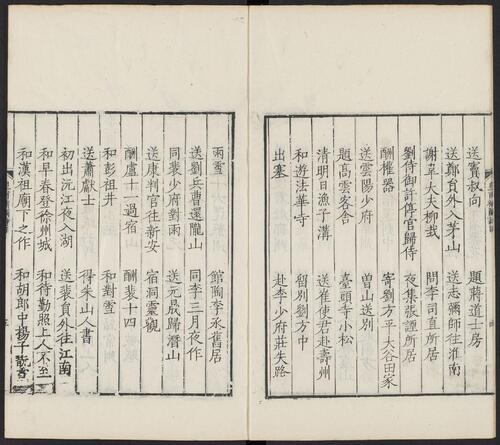 送竇叔向
題蔣道士房
送鄭員外入茅山
送志彌師往淮南
謝韋大夫柳栽
問李司直所居
劉侍御許停官歸侍
夜集張諲所居
酬權器
寄劉方平大谷田家
送雲陽少府
曾山送別
題高雲客舍
臺頭寺小松
清明日漁子溝
送崔使君赴壽州
和遊法華寺
留別劉方中
出塞
赴李少府莊失路
雨雪
館陶李丞舊居
送劉兵曹還隴山
同李三月夜作
同裴少府對雨
送元晟歸潛山
送康判官往新安
宿洞靈觀
酬盧十一過宿
酬裴十四
和彭祖井
和對雪
送蕭獻士
得朱山人書
初出沅江夜入湖
送裴員外往江南
和早春登徐州城
和待勤照上人不至
和漢祖廟下之作
和胡郎中揚子翫雪